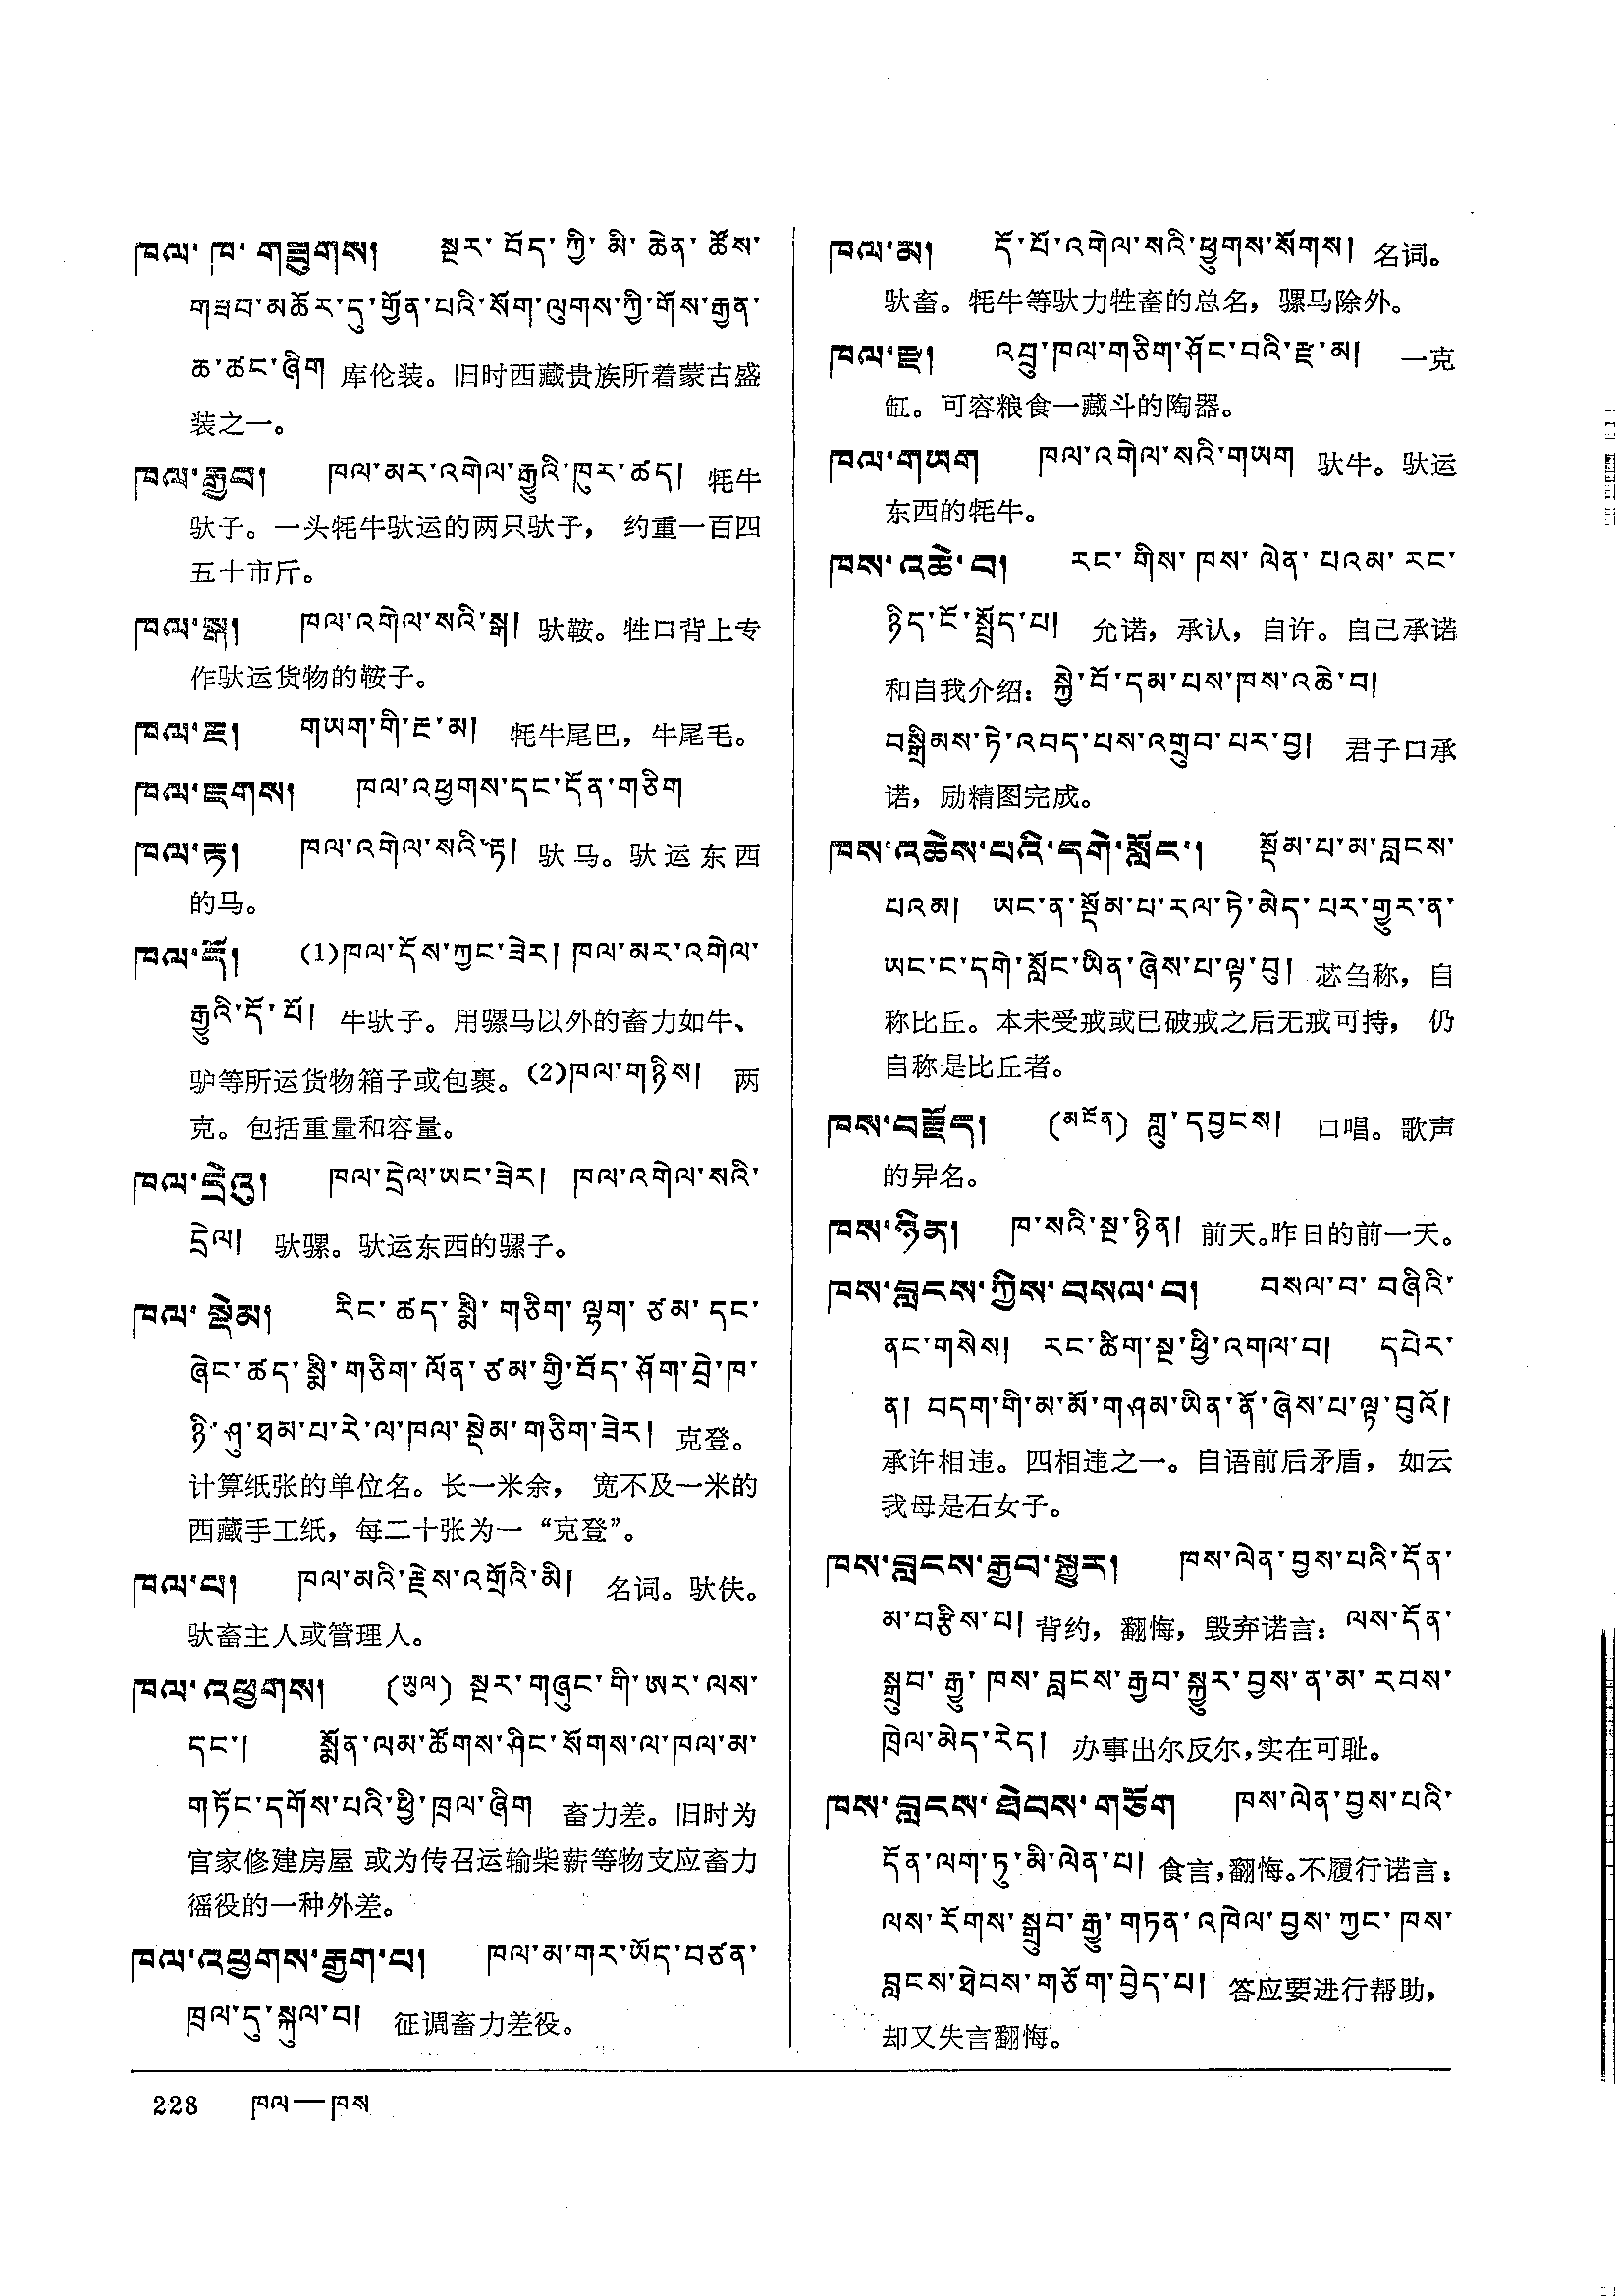 ཁལ་ཁ་གཟུགས། སྔར་བོད་ཀྱི་མི་ཆེན་ཚོས་
གཟབ་མཆོར་དུ་གྱོན་པའི་སོག་ལུགས་ཀྱི་གོས་རྒྱན་
ཆ་ཚང་ཞིག 库伦装。旧时西藏贵族所着蒙古盛
装之一。
ཁལ་རྒྱབ། ཁལ་མར་འགེལ་རྒྱུའི་ཁུར་ཚད། 牦牛
驮子。一头牦牛驮运的两只驮子，约重一百四
五十市斤。
ཁལ་སྒ། ཁལ་འགེལ་སའི་སྒ། 驮鞍。牲口背上专
作驮运货物的鞍子。
ཁལ་ཇ། གཡག་གི་རྔ་མ། 牦牛尾巴，牛尾毛。
ཁལ་རྔགས། ཁལ་འཕྱགས་དང་དོན་གཅིག
ཁལ་རྟ། ཁལ་འགེལ་སའི་རྟ། 驮马。驮运东西
的马。
ཁལ་དོ། (1)ཁལ་དོས་ཀྱང་ཟེར། ཁལ་མར་འགེལ་
རྒྱུའི་དོ་པོ། 牛驮子。用骡马以外的畜力如牛、
驴等所运货物箱子或包裹。(2)ཁལ་གཉིས། 两
克。包括重量和容量。
ཁལ་དྲེའུ། ཁལ་དྲེལ་ཡང་ཟེར། ཁལ་འགེལ་སའི་
དྲེལ། 驮骡。驮运东西的骡子。
ཁལ་སྡེམ། རིང་ཚད་སྨི་གཅིག་ལྷག་ཙམ་དང་
ཞེང་ཚད་སྨི་གཅིག་ལོན་ཙམ་གྱི་བོད་ཤོག་བྲེ་ཁ་
ཉི་ཤུ་ཐམ་པ་རེ་ལ་ཁལ་སྡེམ་གཅིག་ཟེར། 克登。
计算纸张的单位名。长一米余，宽不及一米的
西藏手工纸，每二十张为一“克登”。
ཁལ་པ། ཁལ་མའི་རྗེས་འགྲོའི་མི། 名词。驮伕。
驮畜主人或管理人。
ཁལ་འཕྱགས། (ཡུལ) སྔར་གཞུང་གི་ཨར་ལས་
དང་། སྨོན་ལམ་ཚོགས་ཤིང་སོགས་ལ་ཁལ་མ་
གཏོང་དགོས་པའི་ཕྱི་ཁྲལ་ཞིག 畜力差。旧时为
官家修建房屋或为传召运输柴薪等物支应畜力
徭役的一种外差。
ཁལ་འཕྱགས་རྒྱག་པ། ཁལ་མ་གར་ཡོད་བཙན་
ཁྲལ་དུ་སྐུལ་བ། 征调畜力差役。
ཁལ་མ། དོ་པོ་འགེལ་སའི་ཕྱུགས་སོགས། 名词。
驮畜。牦牛等驮力牲畜的总名，骡马除外。
ཁལ་རྫ། འབྲུ་ཁལ་གཅིག་ཤོང་བའི་རྫ་མ། 一克
缸。可容粮食一藏斗的陶器。
ཁལ་གཡག ཁལ་འགེལ་སའི་གཡག 驮牛。驮运
东西的牦牛。
ཁས་འཆེ་བ། རང་གིས་ཁས་ལེན་པའམ་རང་
ཉིད་ངོ་སྤྲོད་པ། 允诺，承认，自许。自己承诺
和自我介绍：སྐྱེ་བོ་དམ་པས་ཁས་འཆེ་བ།
བསྒྲིམས་ཏེ་འབད་པས་འགྲུབ་པར་བྱ། 君子口承
诺，励精图完成。
ཁས་འཆེས་པའི་དགེ་སློང་། སྡོམ་པ་མ་བླངས་
པའམ། ཡང་ན་སྡོམ་པ་རལ་ཏེ་མེད་པར་གྱུར་ན་
ཡང་ང་དགེ་སློང་ཡིན་ཞེས་པ་ལྟ་བུ། 苾刍称，自
称比丘。本未受戒或已破戒之后无戒可持，仍
自称是比丘者。
ཁས་བརྗོད། (མངོན) གླུ་དབྱངས། 口唱。歌声
的异名。
ཁས་ཉིན། ཁ་སའི་སྔ་ཉིན། 前天。昨日的前一天。
ཁས་བླངས་ཀྱིས་བསལ་བ། བསལ་བ་བཞིའི་
ནང་གསེས། རང་ཚིག་སྔ་ཕྱི་འགལ་བ། དཔེར་
ན། བདག་གི་མ་མོ་གཤམ་ཡིན་ནོ་ཞེས་པ་ལྟ་བུའོ།
承许相违。四相违之一。自语前后矛盾，如云
我母是石女子。
ཁས་བླངས་རྒྱབ་སྐྱུར། ཁས་ལེན་བྱས་པའི་དོན་
མ་བརྩིས་པ། 背约，翻悔，毁弃诺言：ལས་དོན་
སྒྲུབ་རྒྱུ་ཁས་བླངས་རྒྱབ་སྐྱུར་བྱས་ན་མ་རབས་
ཁྲེལ་མེད་རེད། 办事出尔反尔，实在可耻。
ཁས་བླངས་ཐེབས་གཅོག ཁས་ལེན་བྱས་པའི་
དོན་ལག་ཏུ་མི་ལེན་པ། 食言，翻悔。不履行诺言：
ལས་རོགས་སྒྲུབ་རྒྱུ་གཏན་འཁེལ་བྱས་ཀྱང་ཁས་
བླངས་ཐེབས་གཅོག་བྱེད་པ། 答应要进行帮助，
却又失言翻悔。
228 ཁལ—ཁས